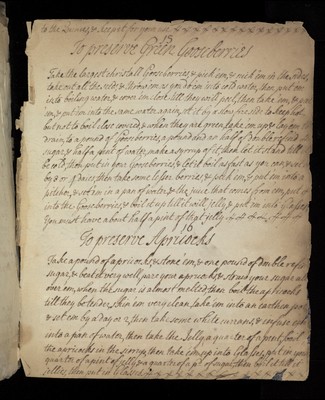 to the Quinces, & keep it for your use
To preserve Green Gooseberries
Take the largest christall Gooseberries, & pick 'em, & in the sides
take out all the seeds, & throw 'em as you do 'em into cold water, then put 'em
into boiling water, & cover 'em close till they will peel, then take 'em, & peel
'em, & put 'em into the same water again, set it by a slow fire side to keep hot
but not to boil, close covered, & when they are green, take 'em up, & lay 'em to
drain, to a pound of Gooseberries, a pound and an half of double refined
sugar, & half a pint of water, make a syrrop of it, then let it stand till
be cold, then put in your Gooseberries, & let it boil as fast as you can, & set it
by 2 or 3 daies, then take some other berries, & pick 'em, & put 'em into a
pitcher, & set 'em in a pan of water, & the juice that comes from 'em, put it
into the Gooseberries, & boil it up till it will jelly, & put 'em into Glasses
You must have about half a pint of that jelly
16
To preserve Apricocks
Take a pound of apricocks, & stone 'em, & one pound of double refined
sugar, & beat it very well, pare your apricocks, & straw your sugar all
over 'em, when the sugar is almost melted, then boil the apricocks
till they be tender, skim 'em very clean, take 'em into an earthen pan
& set 'em by a day or 2, then take some white currants, & infuse 'em
into a pan of water, then take the Jelly a quarter of a pint, boil
the apricocks in the sirrop, then take 'em up into Glasses, put in your
quarter of a pint of jelly, & a quarter of a pd of sugar, then boil it till it
jellies, then put in Glasses